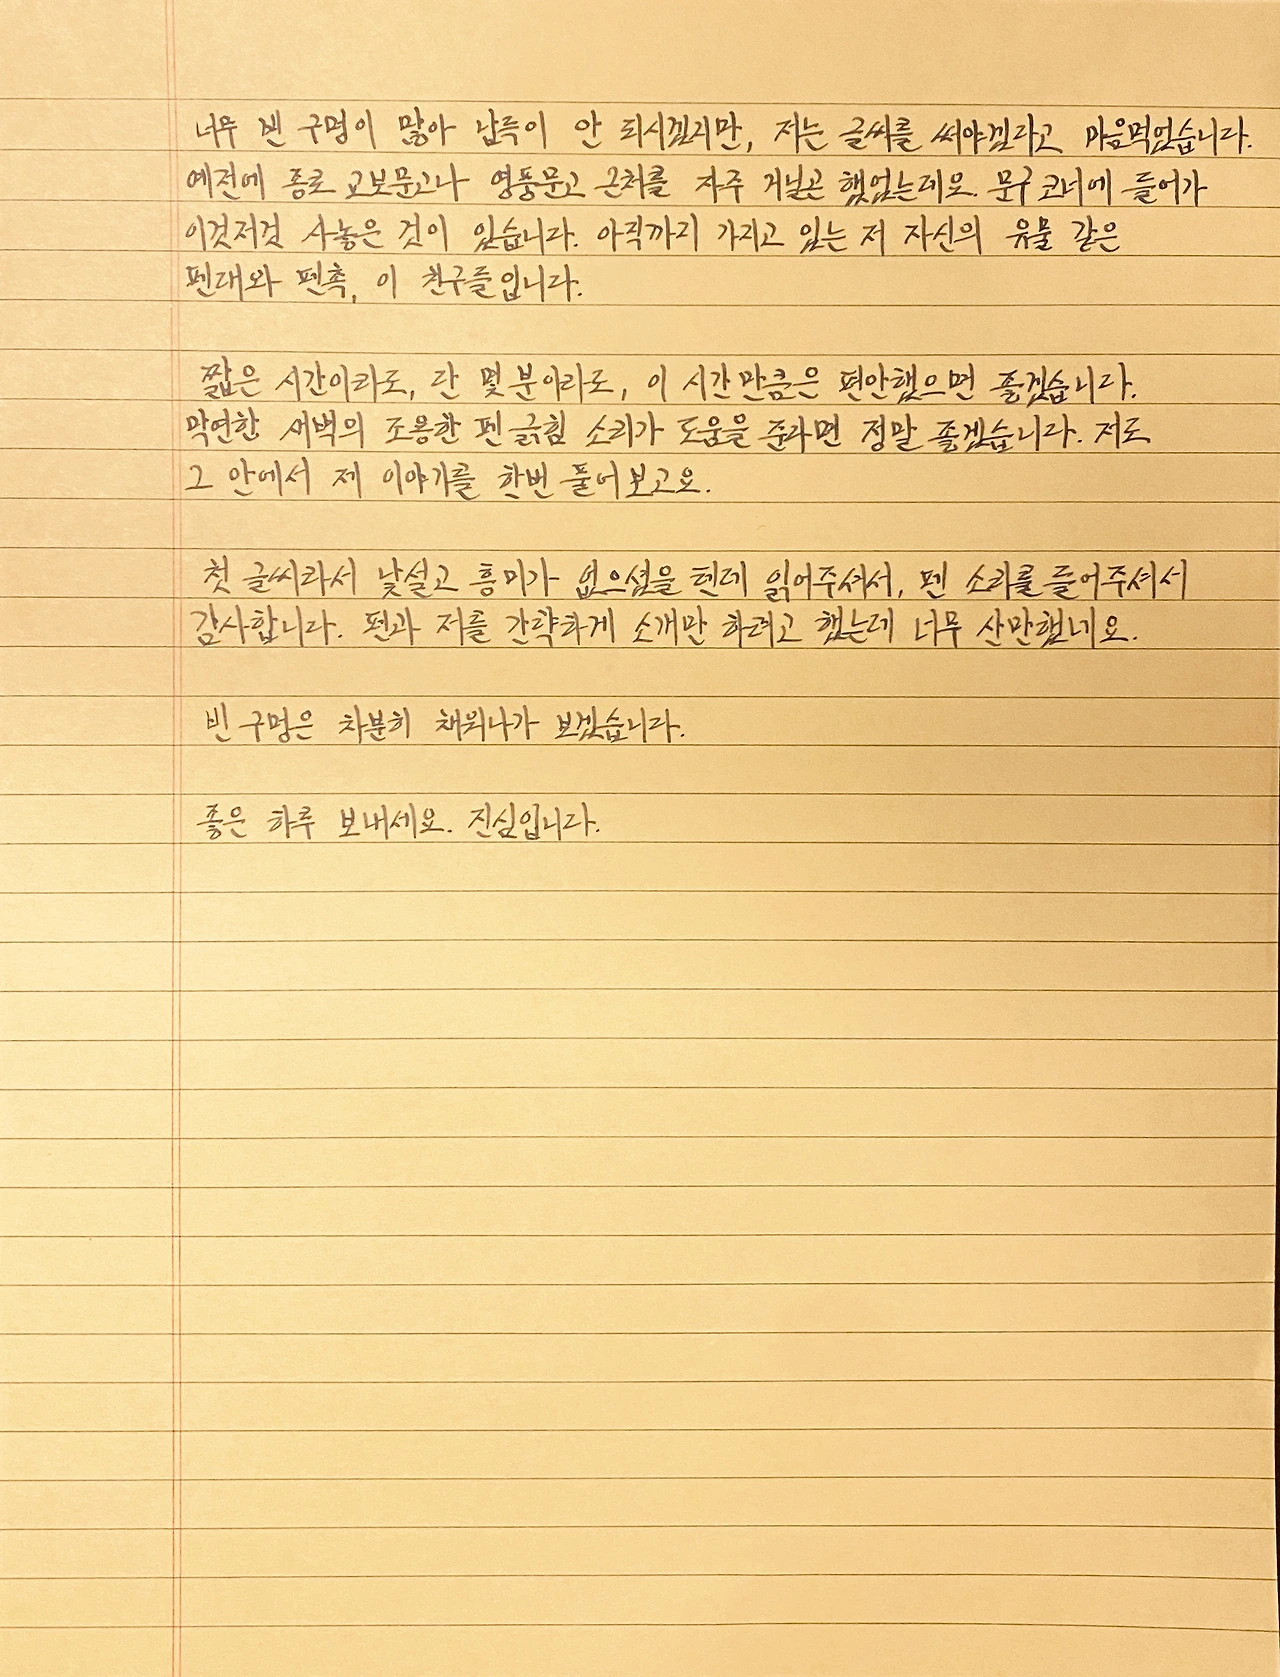 너무 빈 구멍이 많아 납득이 안 되시겠지만, 저는 글씨를 써야겠다고 마음먹었습니다.
예전에 종로 교보문고나 영풍문고 근처를 자주 거닐곤 했었는데요. 문구 코너에 들어가
이것저것 사놓은 것이 있습니다. 아직까지 가지고 있는 저 자신의 유물 같은
펜대와 펜촉, 이 친구들입니다.
짧은 시간이라도, 단 몇 분이라도, 이 시간만큼은 편안했으면 좋겠습니다.
막연한 새벽의 조용한 펜 긁힘 소리가 도움을 준다면 정말 좋겠습니다. 저도
그 안에서 제 이야기를 한번 풀어보고요.
첫 글씨라서 낯설고 흥미가 없으셨을 텐데 읽어주셔서, 펜 소리를 들어주셔서
감사합니다. 펜과 저를 간략하게 소개만 하려고 했는데 너무 산만했네요.
빈 구멍은 차분히 채워나가 보겠습니다.
좋은 하루 보내세요. 진심입니다.